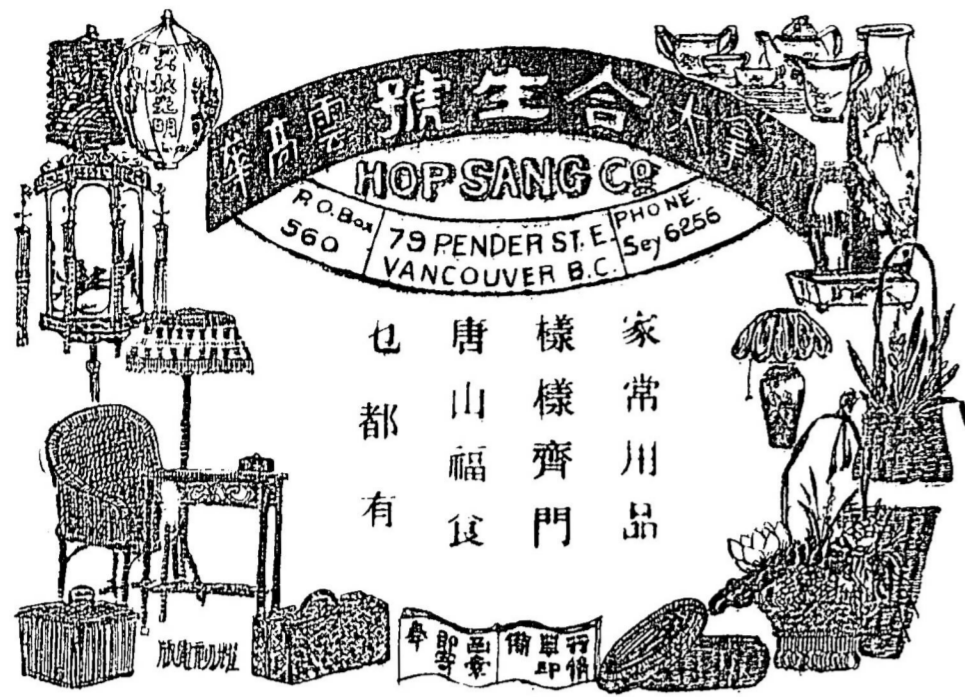 放光明
拿大合生號雲高華
HOP SANG Co
P.O. Box 560
79 PENDER ST. E. VANCOUVER B.C.
PHONE. Sey 6256
家常川品
樣樣齊門
唐山福食
乜都有
行情單印備
函索即寄奉